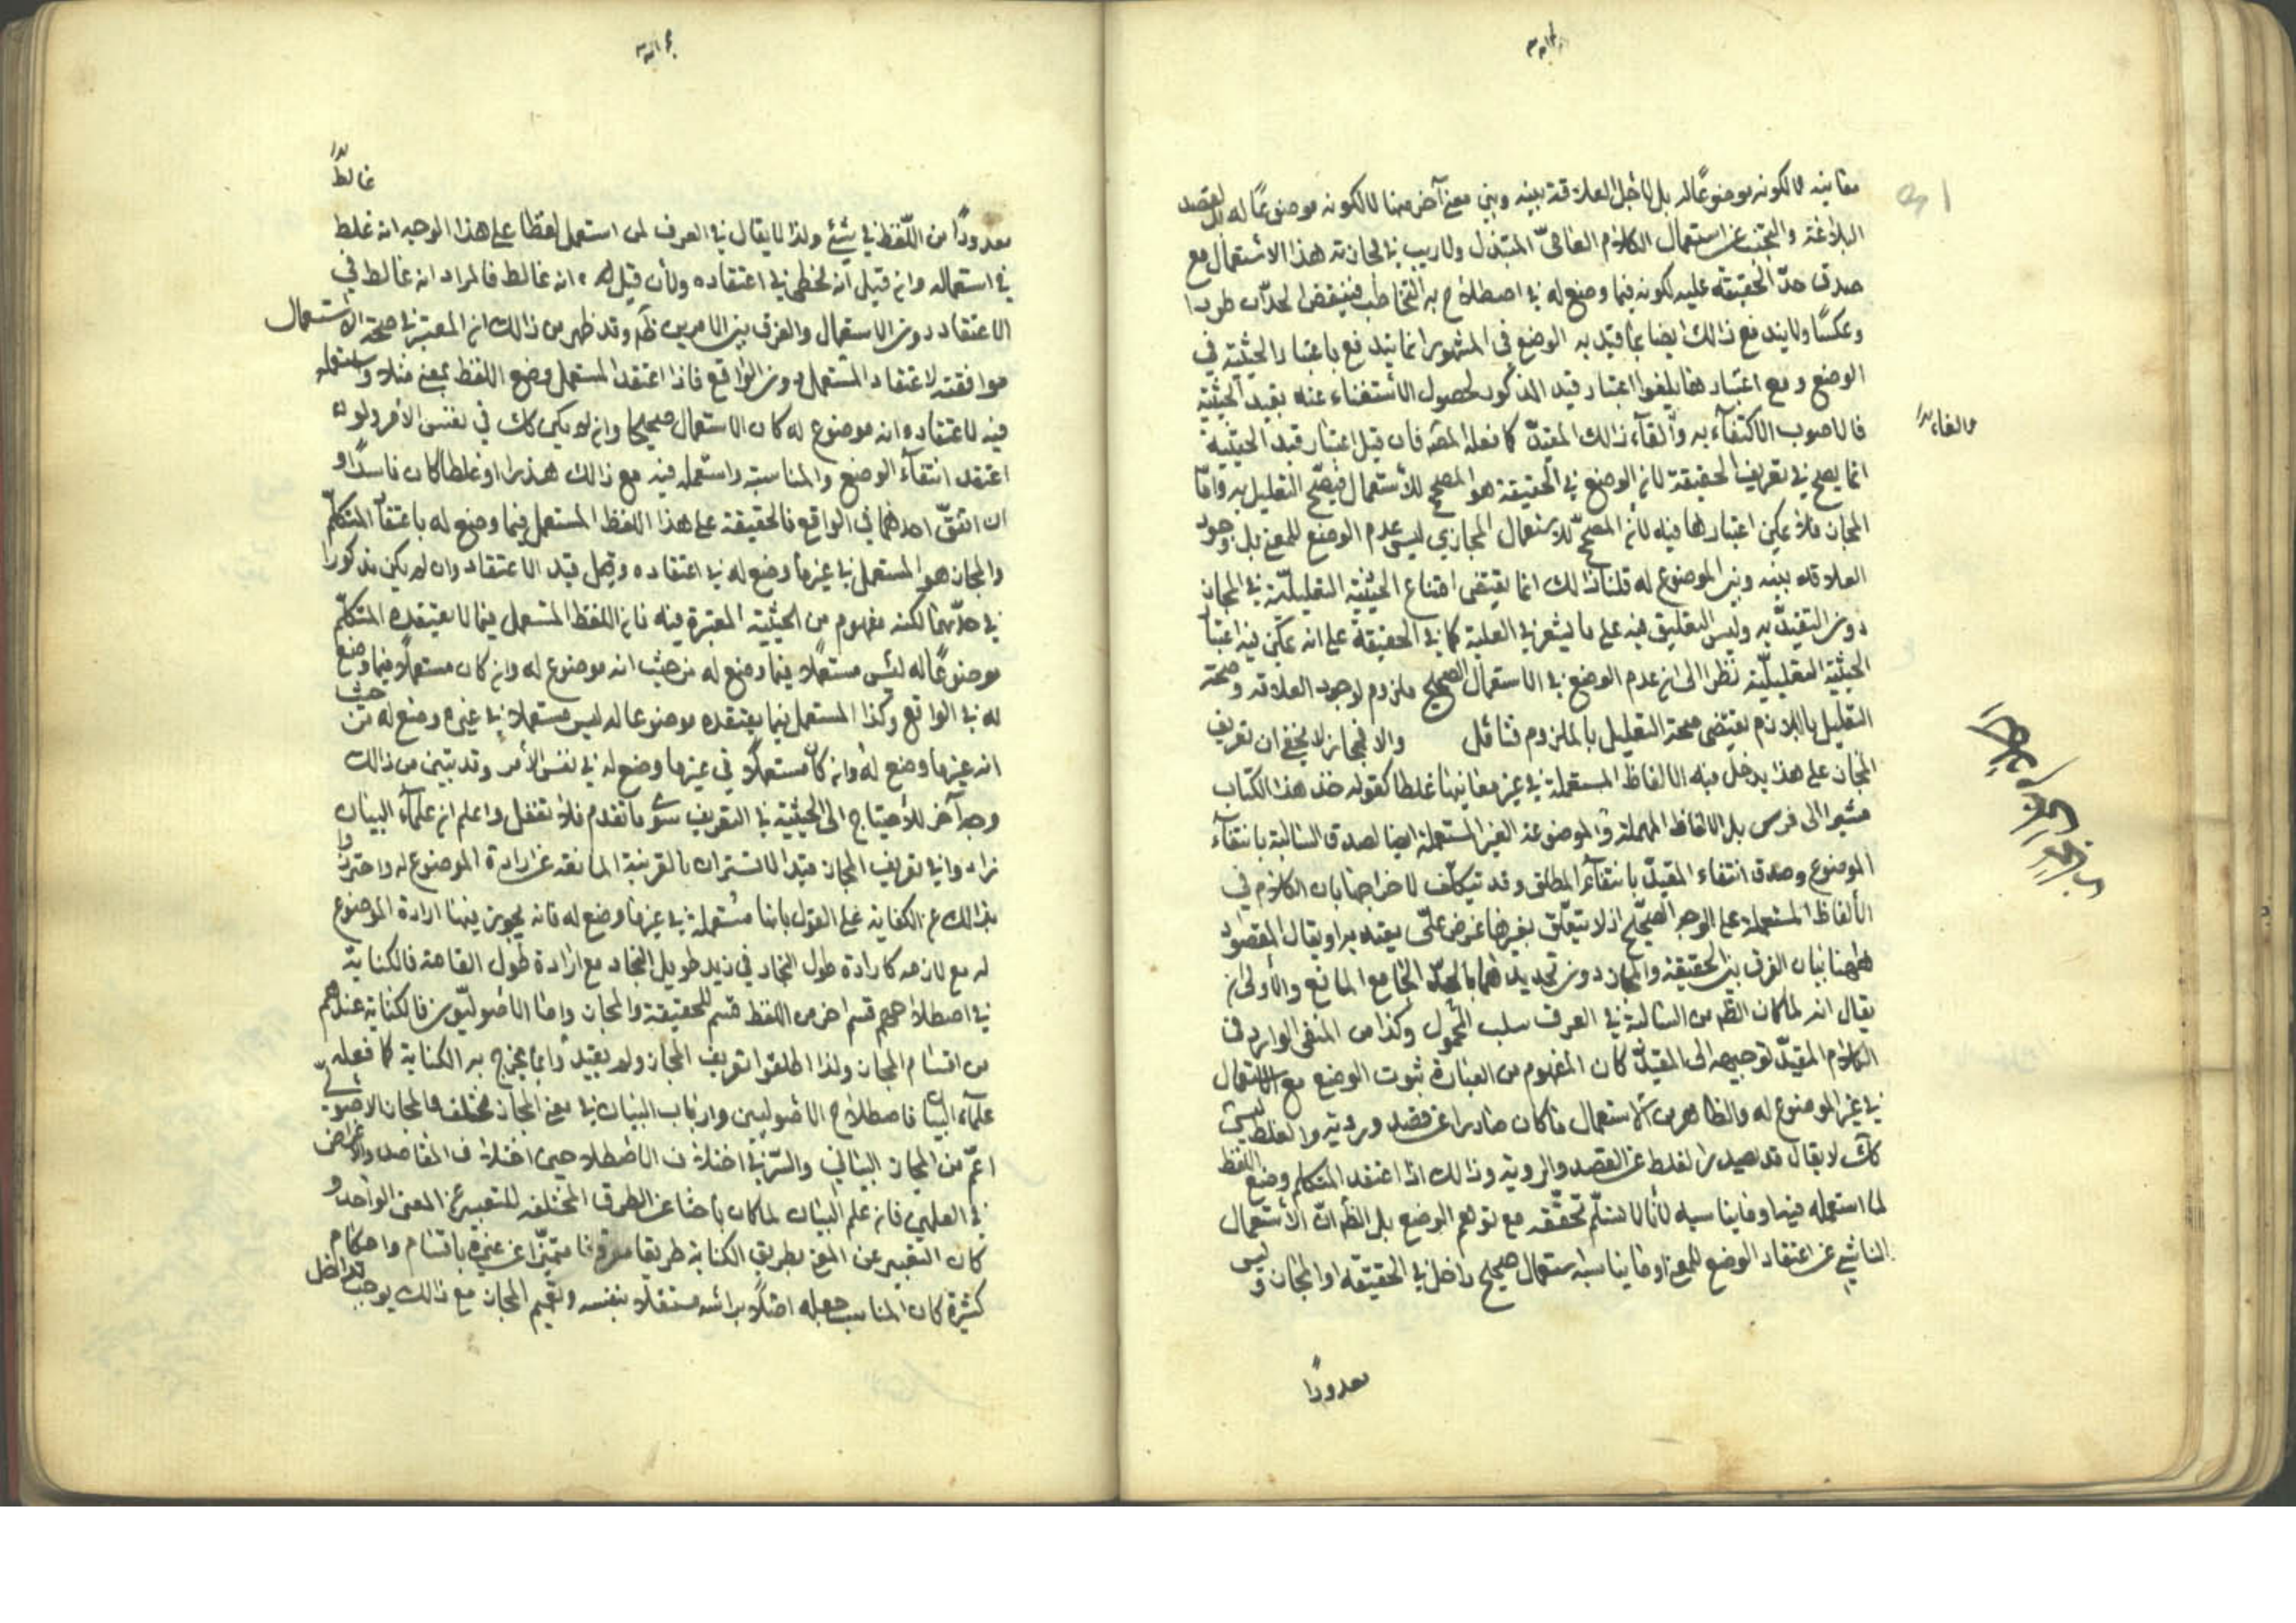 معانيه لا لكونه موضوعًا له بل لاجل العلاقة بينه وبين معنى آخر منها لا لكونه موضوعًا له بل لقصد
البلاغة والتجنب عن استعمال الكلام العامّي المبتذل ولا ريب في مجازية هذا الاستعمال مع
صدق حدّ الحقيقة عليه لكونه فيما وضع له في اصطلاح به التخاطب فينتقض الحدّان طردا
وعكسًا ولا يندفع ذالك ايضا بما قيد به الوضع في المشهور انما يندفع باعتبار الحيثية في
الوضع ومع اعتبارها يلغوا اعتبار قيد المذكور لحصول الأستغناء عنه بقيد الحيثية
فالاصوب الاكتفآء به وألقآء ذالك المقيدّ كما فعله المصّ فان قيل اعتبار قيد الحيثية
والغاء
انما يصح في تعريف الحقيقة لان الوضع في الحقيقة هو المصحح للأستعمال فيصّح التعليل به وامّا
المجاز فلا يمكن اعتبارها فيه لأن المصحّح للاستعمال المجازي ليس عدم الوضع للمعنى بل وجود
العلاقة بينه وبين الموضوع له قلنا ذالك انما يقتضى امتناع الحيثية التعليليّة في المجاز
دون التقيدّ به وليس التعليق فيه على ما يشعر في العلية كما في الحقيقة على انه يمكن فيه اعتبا
الحيثية التعليليّة نظرا الى ان عدم الوضع في الاستعمال الصحيح ملزوم لوجود العلاقة وصحة
التعليل باللازم يقتضى صحة التعليل بالملزوم فتامّل والا فمجاز لا يخفى ان تعريف
المجاز على هذا يدخل فيه الالفاظ المستعملة في غير معانيها غلطا كقوله خذ هذا الكتاب
مشيرا الى فرس بل الالفاظ المهملة والموضوعة الغير المستعملة ايضا لصدق السالبة بانتفآء
الموضوع وصدق انتفاء المقيدّ بانتفآء المطلق وقد يتكلّف لاخراجها بان الكلام في
الألفاظ المستعملة على الوجه الصحيّح اذ لا يتعلّق بغيرها غرض علمّي يعتد به او يقال المقصود
ههنا بيان الفرق بين الحقيقة والمجاز دون تحديدهما بالحدّ الجامع المانع والأولى ان
يقال انه لما كان الظّ من السالبة في العرف سلب المحمول وكذا من المنفى الوارد في
الكلام المقيدّ توجيهه الى المقيدّ كان المفهوم من العبارة ثبوت الوضع مع الاستعمال
في غير الموضوع له والظاهر من الاستعمال ما كان صادرا عن قصد وروية والغلط ليس
كك لا يقال قد يصدر الغلط عن القصد والروية وذالك اذا اعتقد المتكلم وضع اللفظ
لما استعمله فيها وما يناسبه لأنا لا نسلّم تحقّقه مع توهم الوضع بل الظّ انّ الأستعمال
الناشي عن اعتقاد الوضع للمعنى او ما يناسبه استعمال صحيح داخل في الحقيقة او المجاز وليس
معدودًا
غالطً
معدودًا من اللّفظ في شئ ولذا لا يقال في العرف لمن استعمل لفظا على هذا الوجه انه غلط
في استعماله وان قيل أنه مخطى في اعتقاده ولأن قيل له انه غالط فالمراد انه غالط في
الاعتقاد دون الاستعمال والفرق بين الامرين ظّ وقد ظهر من ذالك ان المعتبر في صحة الاستعمال
موافقته لاعتقاد المستعمل دون الواقع فاذا اعتقد المستعمل وضع اللفظ لمعنى مثلا واستعمله
فيه لاعتقاده انه موضوع له كان الاستعمال صحيحا وان لم يكن كك في نفس الأمر ولو
اعتقد انتفآء الوضع والمناسبة واستعمله فيه مع ذالك هذرا او غلطا كان فاسدًا و
ان اتفقّ احدهما في الواقع فالحقيقة على هذا اللفظ المستعمل فيما وضع له باعتقآ المتكلّم
والمجاز هو المستعمل في غير ما وضع له في اعتقاده وقيد الاعتقاد وان لم يكن مذكورا
في حدّيهما لكنه مفهوم من الحيثية المعتبرة فيه فان اللفظ المستعمل فيما لا يعتقده المتكلّم
موضوعًا له ليس مستعملا فيما وضع له من حيث انه موضوع له وان كان مستعملًا فيما وضع
له في الواقع وكذا المستعمل فيما يعتقده موضوعا له ليس مستعملا في غير ما وضع له من حيث
انه غير ما وضع له وان كان مستعملًا في غير ما وضع له في نفس الأمر وقد تبيّن من ذالك
وجه آخر للأحتياج الى الحيثية في التعريف سوى ما تقدم فلا تغفل واعلم ان علمآء البيان
زادوا في تعريف المجاز قيد الاقتران بالقرينة المانعة عن ارادة الموضوع له واحترزوا
بذالك عن الكناية على القول بانها مستعملة في غير ما وضع له فانه يجوز فيها ارادة الموضوع
له مع لازمه كارادة طول النجاد في زيد طويل النجاد مع ارادة طول القامة فالكناية
في اصطلاحهم قسم اخر من اللفظ قسيم للحقيقة والمجاز واما الاصوليّون فالكناية عندهم
من اقسام المجاز ولذا اطلقوا تعريف المجاز ولم يقيدّ وا بما يخرج به الكناية كما فعله
علمآء البيان فاصطلاح الاصوليين وارباب البيان في معنى المجاز مختلف والمجاز الاصولى
اعمّ من المجاز البياني والسّر في اختلاف الاصطلاحين اختلاف المقاصد والاغراض
في العلمين فان علم البيان لما كان باحثا عن الطرق المختلفة للتعبير عن المعنى الواحد و
كان التعبير عن المعنى بطريق الكناية طريقا متميّزا عن غيره باقسام واحكام
كثيرة كان المناسب جعله اصلًا برأسه مستقلا بنفسه وتعميم المجاز مع ذالك يوجب تداخل